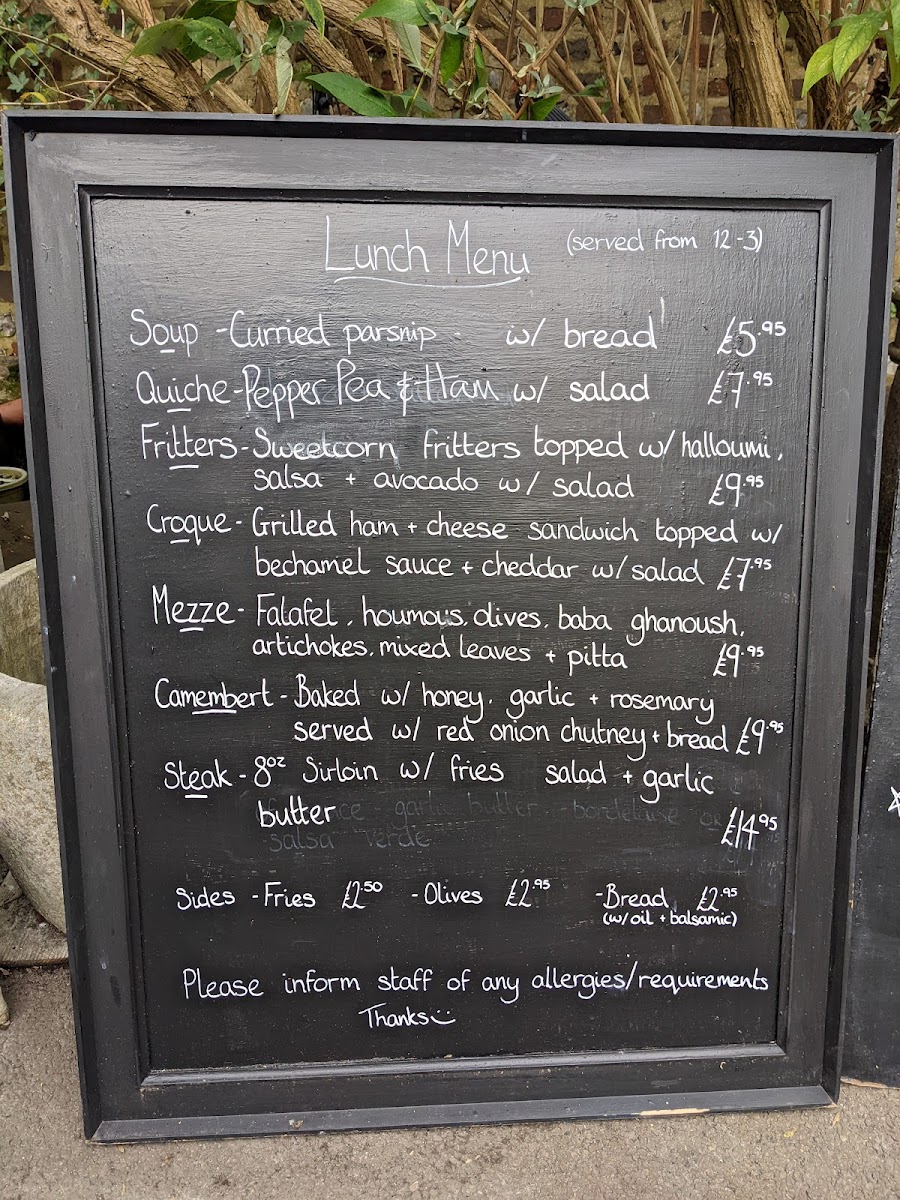 Lunch Menu (served from 12-3)
Soup - Curried parsnip - w/ bread £5.95
Quiche - Pepper Pea & Ham w/ salad £7.95
Fritters - Sweetcorn fritters topped w/ halloumi,
salsa + avocado w/ salad £9.95
Croque - Grilled ham + cheese sandwich topped w/
bechamel sauce + cheddar w/ salad £7.95
Mezze - Falafel, houmous, olives, baba ghanoush,
artichokes, mixed leaves + pitta £9.95
Camembert - Baked w/ honey, garlic + rosemary
served w/ red onion chutney + bread £9.95
Steak - 8oz Sirloin w/ fries salad + garlic
butter garlic butter bordelaise or £14.95
salsa verde
Sides - Fries £2.50 - Olives £2.95 - Bread £2.95
(w/ oil + balsamic)
Please inform staff of any allergies/requirements
Thanks